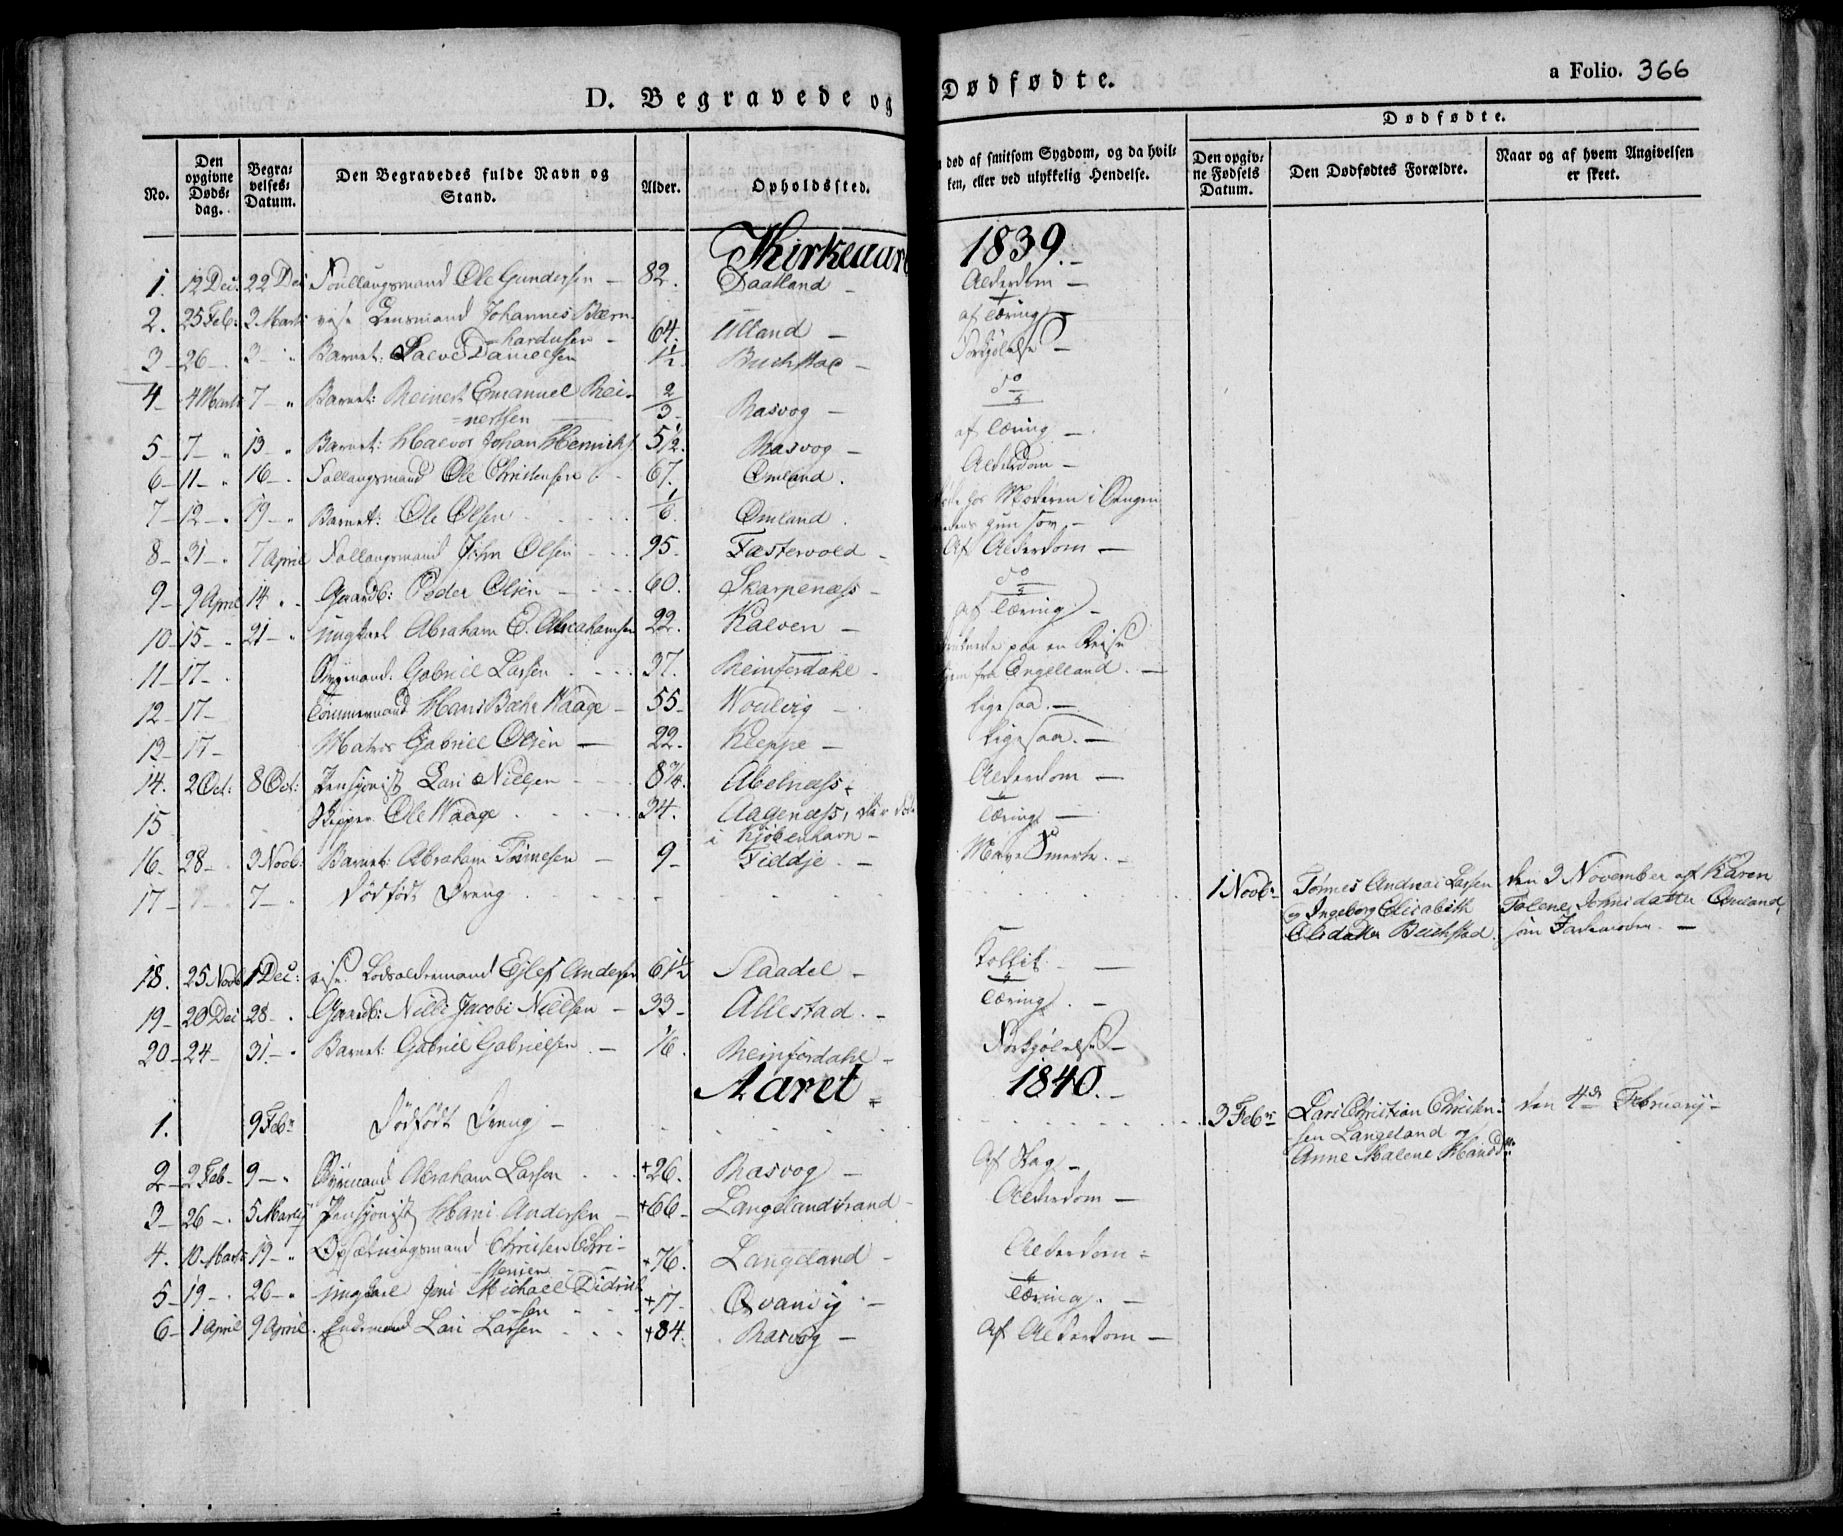 D. Begravede og Dødfødte.
a Folio. 366
No.
Den opgivne Døds-dag.
Begra-velses-Datum.
Den Begravedes fulde Navn og Stand.
Alder.
Opholdssted.
død af smitsom Sygdom, og da hvil-
ken, eller ved ulykkelig Hendelse.
Dødfødte.
Den opgiv-ne Fødsels Datum.
Den Dødfødtes Forældre.
Naar og af hvem Angivelsen er skeet.
Kirkeaaret 1839.
1. 12 Dec: 22 Dec Ole Gundersen 82. Daatland Alderdom
2. 25 Feb: 3 Marti Lensmand Johannes Bern-
hardusen 64. Ulland af Tæring
3 26 3 Barnet: Danielsen 1½ Buchstad Forkjølelse
4 4 Marti 7 Barnet: Reinert Emanuel Rei-
nertsen 2/3 Rasvog do
5 7 13 Barnet: Halvor Johan Henrichs 5½ Rasvog af Tæring
6 11 16 Ole Christensen 67. Omland. Alderdom
7 12 19 Barnet: Ole Olsen 1/6 Omland hos Moderen i Sengen
hun sov
8 31 7 April John Olsen 95 Fastevold Af Alderdom
9 9 April 14 Gaardb: Peder Olsen 60. Skarpenæss do
10 15 21 Ungkarl Abraham E. Abrahamsen 22. Kalven af Tæring
11 17 Gabriel Larsen 37. Reinferdahl paa en Reise
fra Engelland.
12 17 Tømmermand Hans Waage 55 Woulvig Ligesaa.
13 17 Matros Gabriel Olsen 22. Kleppe Ligesaa.
14. 2 Oct: 8 Oct: Pensjonist Lars Nielsen Abelnæss Alderdom
15 Skipper Ole Waage 34. Aagenæss, døde
i Kjøbenhavn Tæring
16 28 3 Novb: Barnet: Abraham Tørresen 9 Fiddje Mave Smerte.
17 7 Dødfødt Dreng 1 Novbr Tønnes Andreas Larsen den 3 November af Karen
og Ingeborg Elisabeth Tolene Johnsdatter Omland,
Olsdatter Buchstad. som Jordemoder.
18. 25 Novb 1 Dec: Lodsoldermand Ejlef Andersen 61½ Staadel
19 20 Dec 28 Gaardb: Nills Jacob Nielsen 33 Allestad. Tæring.
20 24 31 Barnet: Gabriel Gabrielsen 1/6. Reinferdahl Forkjølelse
Aaret 1840.
1. 9 Febr Dødfødt Dreng 3 Febr Lars Christian Christen-
sen Langeland og
Anne Malene Hansd den 4de Februarij
2 2 Feb 9 Abraham Larsen +26. Rasvog Af
3 26 5 Martij Pensjonist Hans Andersen +66 Langelandstrand Alderdom
4. 10 Marti 19 Opsætningsmand Christen Chri-
stensen +76. Langeland Alderdom
5 19 26 Ungkarl Jens Michael Didrich-
sen +17 Qvanvig Tæring.
6 1 April 9 April. Lars Larsen +84. Rasvog Af Alderdom